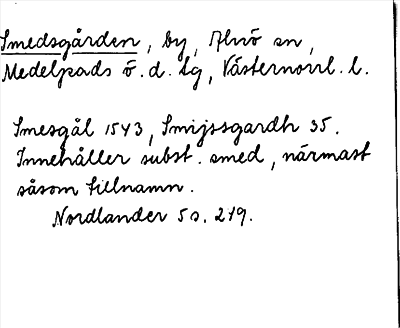 Smedsgården, by, Alnö sn,
Medelpads ö. d. tg, Västernorrl. l.
Smesgål 1543, Smijssgardh 35.
Innehåller subst. smed, närmast
såsom tillnamn.
Nordlander 5 s. 219.